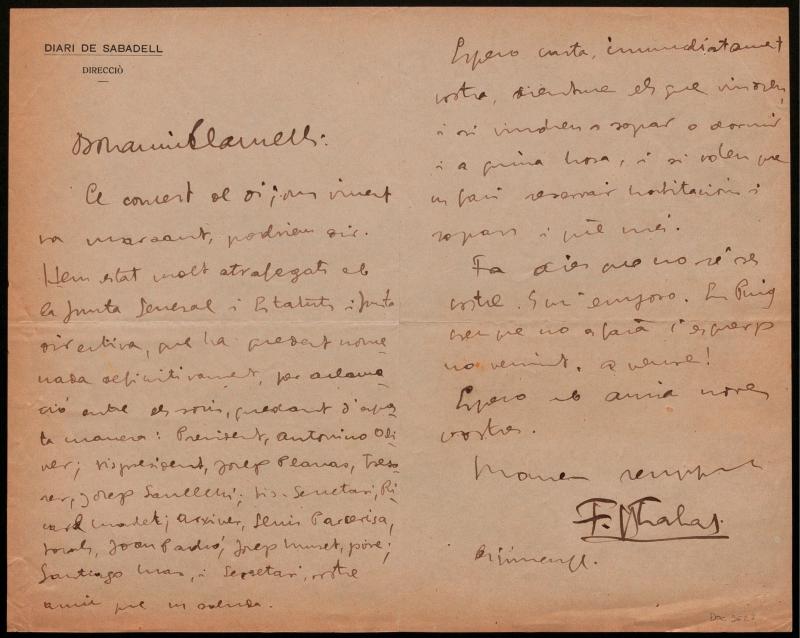 DIARI DE SABADELL
DIRECCIÓ
Bon amic Clarnelli:
El concert de dijous vinent
va marxant, podríem dir.
Hem estat molt atrafegats ab
la Junta General i Estatuts i Junta
directiva, que ha quedat nome-
nada definitivament, per aclama-
ció entre els socis, quedant d'aques-
ta manera: President, Antonino Oli-
ver; vispresident, Josep Planas, Treso-
rer, Josep Sanllehi; vis-Secretari, Ri-
card Madet; Arxiver, Genís Parcerisa,
vocals, Joan Padró, Josep Munet, pvre;
Santiago Mas, i Secretari, vostre
amic que us saluda.
Espero carta, immediatament
vostra, dient-me els que vindreu,
i si vindreu a sopar o dormir
i a quina hora, i si voleu que
us faci reservar habitacions i
sopars i què més.
Fa dies que no sé res
vostre. S'ens enyora. En Puig
creu que no
no venint. A veure!
Espero ab ansia noves
vostres.
Maneu sempre
F.
Diumenge.
Doc 3622